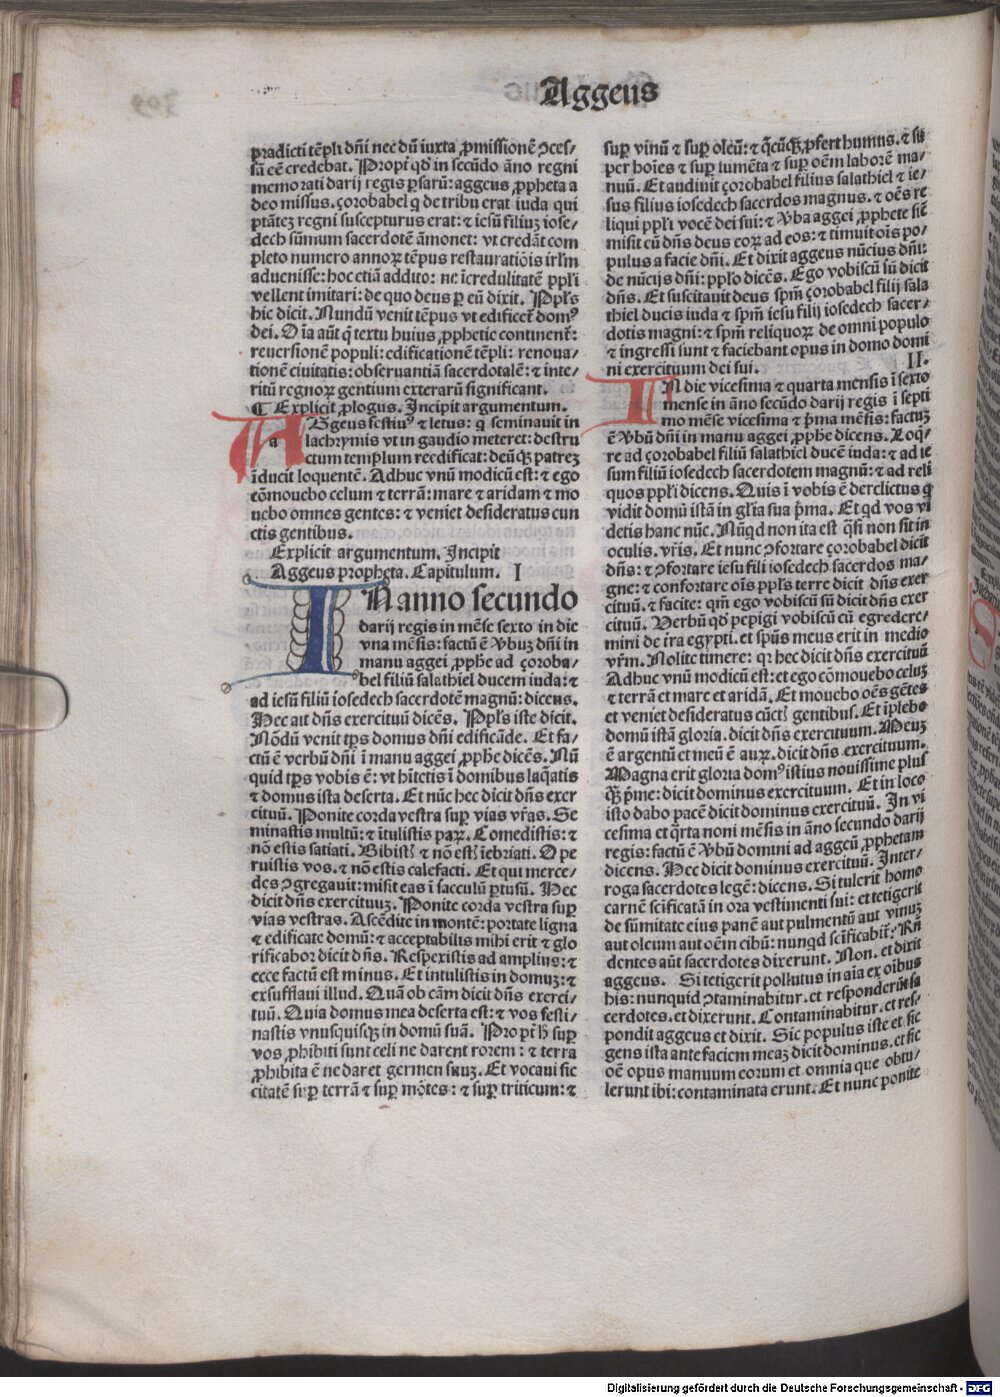 Aggeus
pradicti tēpli dn̄i nec dū iuxta ꝓmissionē ꝯces-
sā eē credebat. Propt̄ qđ in secūdo āno regni
memorati darij regis ꝑsarū: aggeus ꝓpheta a
deo missus. çorobabel q̇ de tribu erat iuda qui
ptātez regni suscepturus erat: ⁊ iesū filiuz iose-
dech sūmum sacerdotē āmonet: vt credāt com
pleto numero annoꝝ tēpus restauratiōis irl̄m
aduenisse: hoc etiā addito: ne īcredulitatē ppl̄i
vellent imitari: de quo deus ꝑ eū dixit. Ppl̄s
hic dicit. Nundū venit tēpus vt edificet̄ domꝰ
dei. Oīa aūt q̇ textu huius ꝓphetie continent̄:
reuersionē populi: edificationē tēpli: renoua-
tionē ciuitatis: obseruantiā sacerdotalē: ⁊ inte-
ritū regnoꝝ gentium exterarū significant.
¶ Explicit ꝓlogus. Incipit argumentum.
AGgeus festiuꝰ ⁊ letus: q̇ seminauit in
a lachrymis vt in gaudio meteret: destru
ctum templum reedificat: deūqꝫ patrez
īducit loquentē. Adhuc vnū modicū est: ⁊ ego
cōmouebo celum ⁊ terrā: mare ⁊ aridam ⁊ mo
uebo omnes gentes: ⁊ veniet desideratus cun
ctis gentibus.
Explicit argumentum. Incipit
Aggeus propheta. Capitulum. I
IN anno secundo
darij regis in mēse sexto in die
vna mēsis: factū ē v̄buz dn̄i in
manu aggei ꝓphe ad çoroba-
bel filiū salathiel ducem iuda: ⁊
ad iesū filiū iosedech sacerdotē magnū: dicens.
Hec ait dn̄s exercituū dicēs. Ppl̄s iste dicit.
Nōdū venit tp̄s domus dn̄i edificāde. Et fa-
ctū ē verbū dn̄i ī manu aggei ꝓphe dicēs. Nū
quid tp̄s vobis ē: vt hītetis ī domibus laq̄atis
⁊ domus ista deserta. Et nūc hec dicit dn̄s exer
cituū. Ponite corda vestra suꝑ vias vr̄as. Se
minastis multū: ⁊ ītulistis paꝝ. Comedistis: ⁊
nō estis satiati. Bibist̄ ⁊ nō est̄ īebriati. Ope
ruistis vos. ⁊ nō estis calefacti. Et qui merce-
des ꝯgregauit: misit eas ī sacculū ꝑtusū. Hec
dicit dn̄s exercituuꝫ. Ponite corda vestra suꝑ
vias vestras. Ascēdite in montē: portate ligna
⁊ edificate domū: ⁊ acceptabilis mihi erit ⁊ glo
rificabor dicit dn̄s. Respexistis ad amplius: ⁊
ecce factū est minus. Et intulistis in domuz: ⁊
exsufflaui illud. Quā ob cām dicit dn̄s exerci-
tuū. Quia domus mea deserta est: ⁊ vos festi-
nastis vnusquisqꝫ in domū suā. Propt̄ h̄ suꝑ
vos ꝓhibiti sunt celi ne darent rorem: ⁊ terra
ꝓhibita ē ne daret germen suuꝫ. Et vocaui sic
citatē suꝑ terrā ⁊ suꝑ mōtes: ⁊ suꝑ triticum: ⁊
suꝑ vinū ⁊ suꝑ oleū: ⁊ q̄cūqꝫ ꝓfert humus. ⁊ su
per hoīes ⁊ suꝑ iumēta ⁊ suꝑ oēm laborē ma-
nuū. Et audiuit çorobabel filius salathiel ⁊ ie-
sus filius iosedech sacerdos magnus. ⁊ oēs re
liqui ppl̄i vocē dei sui: ⁊ v̄ba aggei ꝓphete sic̄
misit eū dn̄s deus eoꝝ ad eos: ⁊ timuit oīs po-
pulus a facie dn̄i. Et dixit aggeus nūcius dn̄i:
de nūcijs dn̄i: ppl̄o dicēs. Ego vobiscū sū dicit
dn̄s. Et suscitauit deus spm̄ çorobabel filij sala
thiel ducis iuda ⁊ spm̄ iesu filij iosedech sacer-
dotis magni: ⁊ spm̄ reliquoꝝ de omni populo
⁊ ingressi sunt ⁊ faciebant opus in domo domi
ni exercituum dei sui. II.
IN die vicesima ⁊ quarta mensis ī sexto
mense in āno secūdo darij regis ī septi
mo mēse vicesima ⁊ p̄ma mēsis: factuꝫ
ē v̄bū dn̄i in manu aggei ꝓphe dicens. Loq̄-
re ad çorobabel filiū salathiel ducē iuda: ⁊ ad ie
sum filiū iosedech sacerdotem magnū: ⁊ ad reli
quos ppl̄i dicens. Quis ī vobis ē derelictus q̇
vidit domū istā in gl̄ia sua p̄ma. Et qd vos vi
detis hanc nūc. Nūqd non ita est q̄si non sit in
oculis. vr̄is. Et nunc ꝯfortare çorobabel dicit
dn̄s: ⁊ ꝯfortare iesu fili iosedech sacerdos ma-
gne: ⁊ confortare oīs ppl̄s terre dicit dn̄s exer
cituū. ⁊ facite: qm̄ ego vobiscū sū dicit dn̄s exer
cituū. Verbū qđ pepigi vobiscū cū egredere-
mini de īra egypti. et spūs meus erit in medio
vr̄m. Nolite timere: qr hec dicit dn̄s exercituū
Adhuc vnū modicū est: et ego cōmouebo celuꝫ
⁊ terrā et mare et aridā. Et mouebo oēs gētes
et veniet desideratus cūct̄ gentibus. Et īplebo
domū istā gloria. dicit dn̄s exercituum. Meuꝫ
ē argentū et meū ē auꝝ. dicit dn̄s exercituum.
Magna erit gloria domꝰ istius nouissime plus
qꝫ p̄me: dicit dominus exercituum. Et in loco
isto dabo pacē dicit dominus exercituū. In vi
cesima et q̄rta noni mēsis in āno secundo darij
regis: factū ē v̄bū domini ad aggeū ꝓphetam
dicens. Hec dicit dominus exercituū. Inter-
roga sacerdotes legē: dicens. Si tulerit homo
carnē scificatā in ora vestimenti sui: et tetigerit
de sūmitate eius panē aut pulmentū aut vinuꝫ
aut oleum aut oēm cibū: nunqd sc̄ificabit̄: Rn̄
dentes aūt sacerdotes dixerunt. Non. et dixit
aggeus. Si tetigerit pollutus in aīa ex oībus
his: nunquid ꝯtaminabitur. et responderūt sa
cerdotes. et dixerunt. Contaminabitur. et res-
pondit aggeus et dixit. Sic populus iste et sic
gens ista ante faciem meaꝫ dicit dominus. et sic
oē opus manuum eorum et omnia que obtu-
lerunt ibi: contaminata erunt. Et nunc ponite
Digitalisierung gefördert durch die Deutsche Forschungsgemeinschaft - DFG